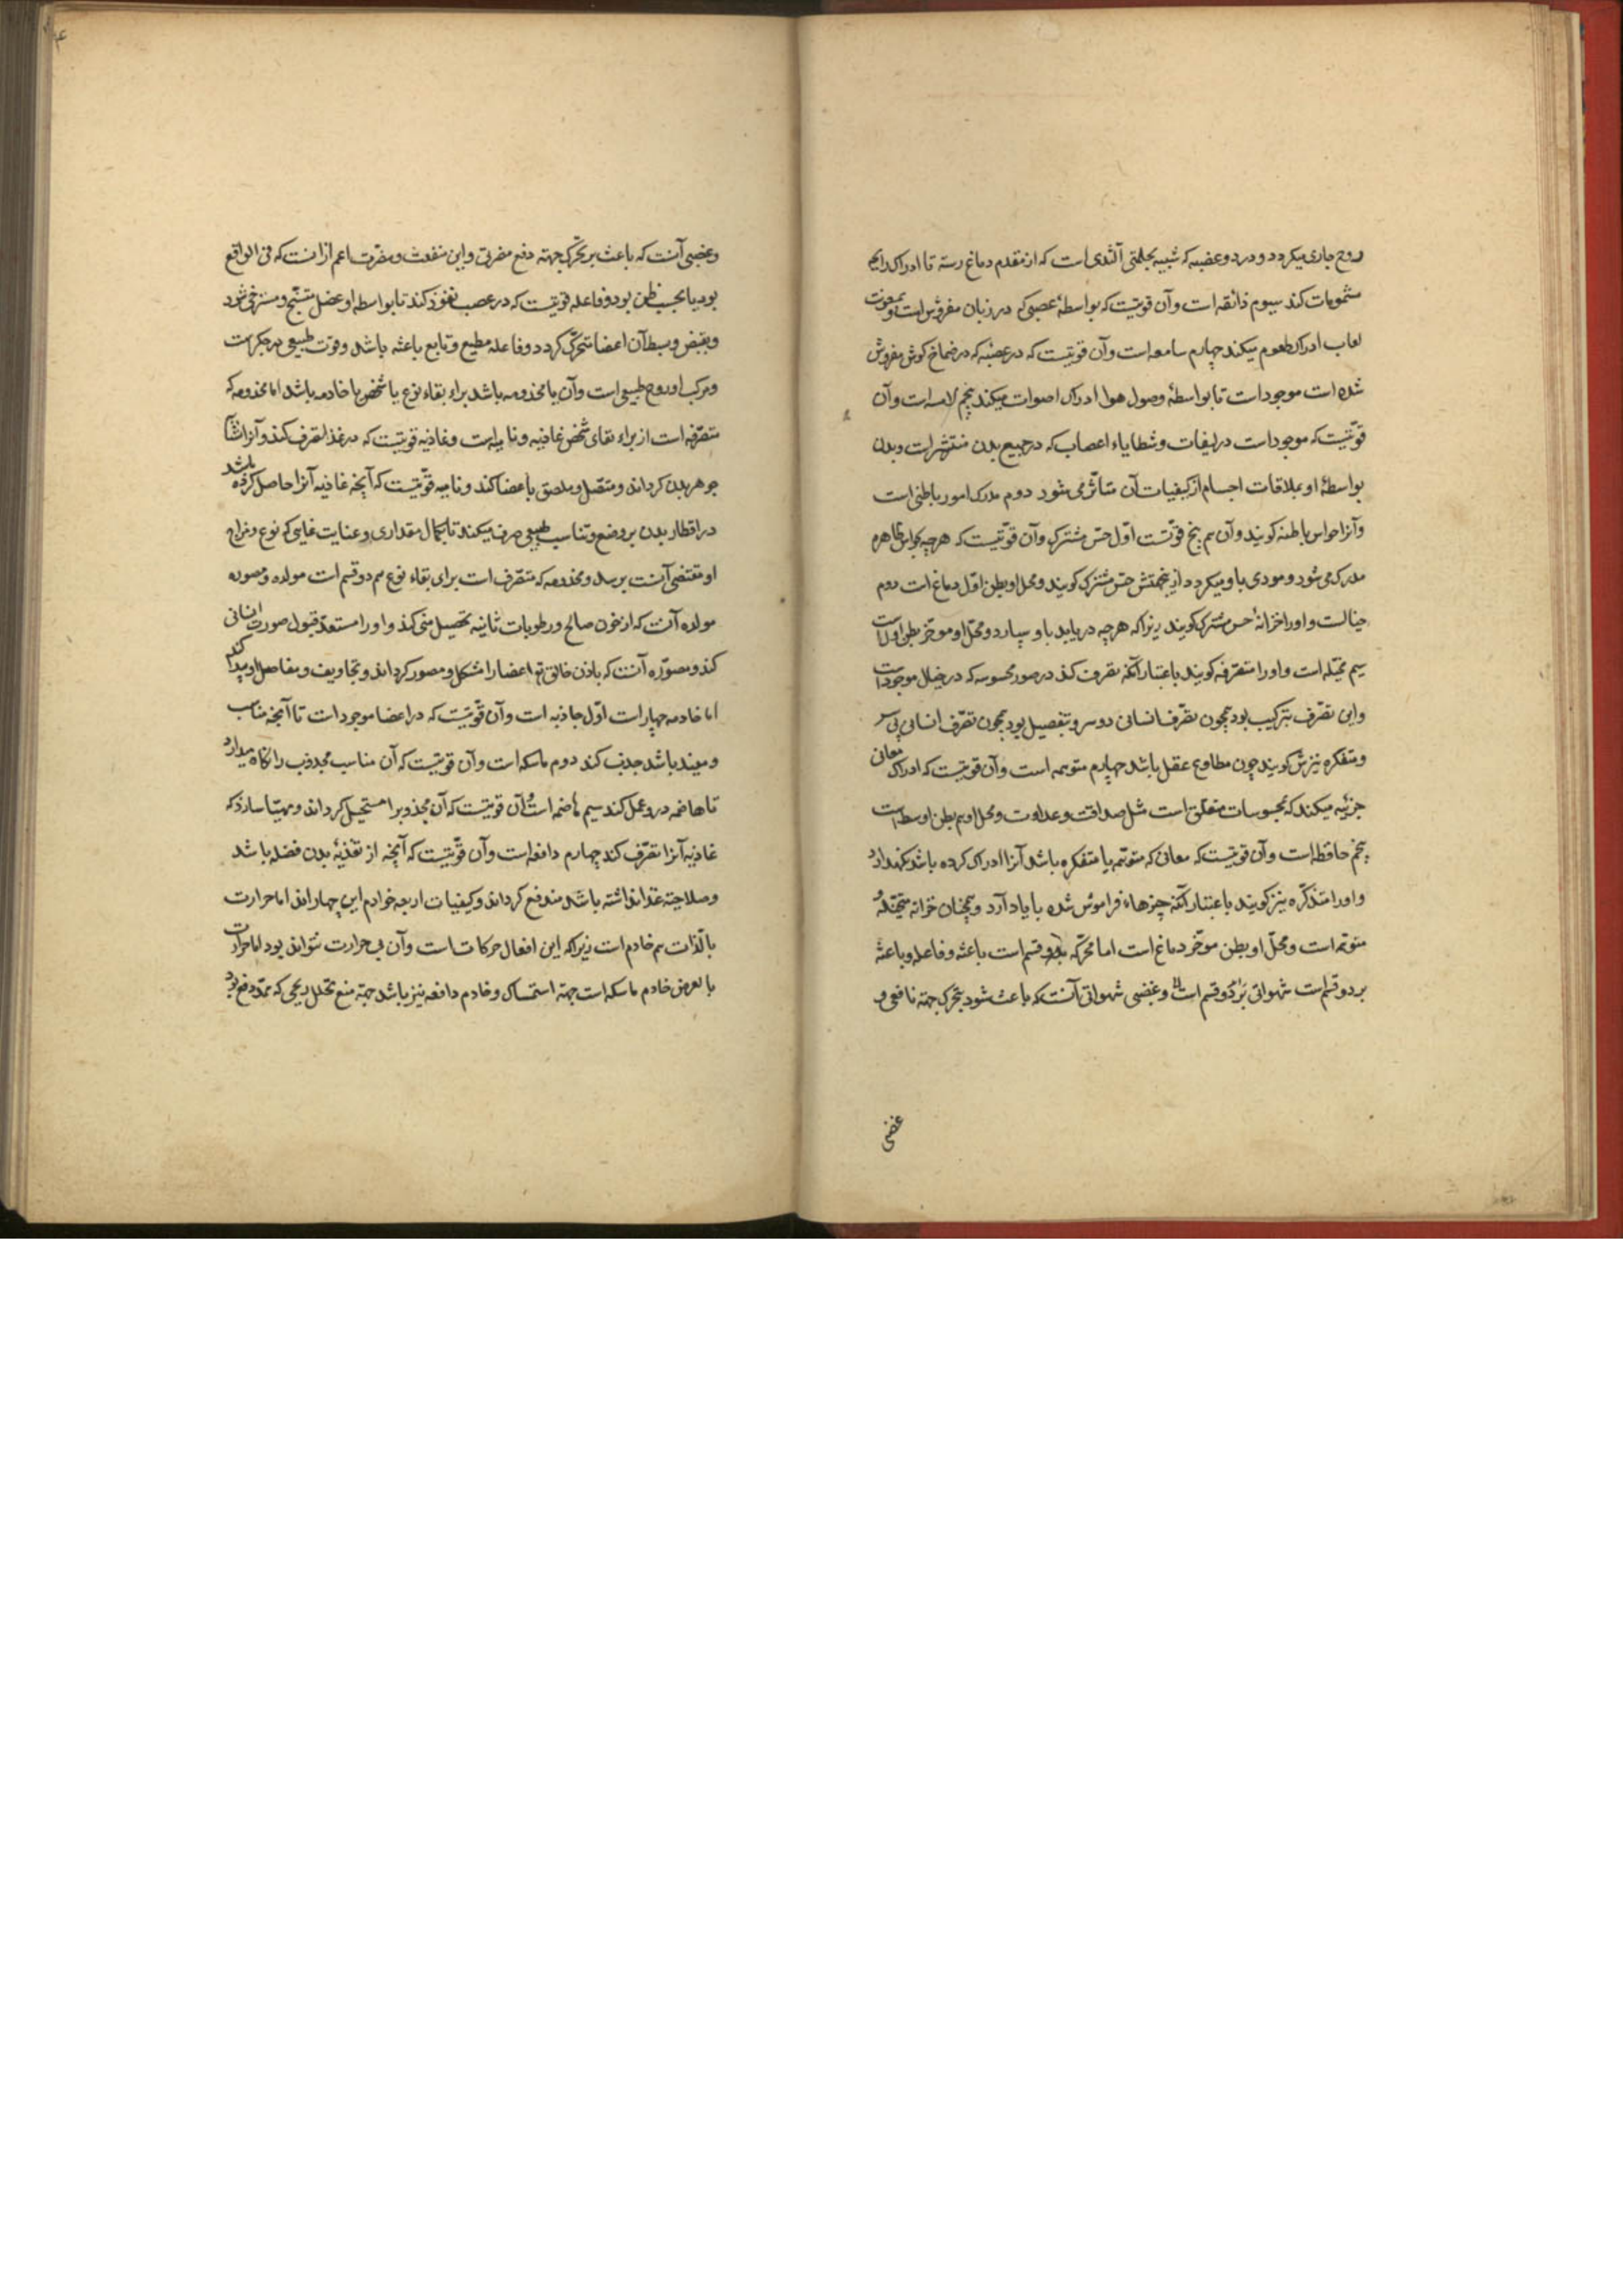 روح جاری میکردد و در دو عصبه که شبیه بحلمتی الثدی است که از مقدم دماغ رسته تا ادراک رایحه
مشمومات کند سیوم ذائقه است و آن قوتیست که بواسطهٔ عصبی که در زبان مفروش است و بمعونت
لعاب ادراک طعوم میکند چهارم سامعه است و آن قوتیست که در عصبهٔ که در صماخ کوش مفروش
شده است موجود است تا بواسطهٔ وصول هوا ادراک اصوات میکند پنجم لامسه است و آن
قوتیست که موجود است در لیفات و شظایاء اعصاب که در جمیع بدن منتشر است و بدن
بواسطهٔ او بملاقات اجسام از کیفیات آن متاثر می شود دوم مدرک امور باطنی است
و آنرا حواس باطنه کویند و آن هم پنج قوتست اول حس مشترک و آن قوتیست که هرچه بحواس ظاهره
مدرک می شود و مودی باو میکردد از ینجهتش حس مشترک کویند و محل او بطن اول دماغ است دوم
خیالست و اورا خزانهٔ حس مشترک کویند زیراکه هرچه دریابد باو سپارد و محل او موخر بطن اولست
سیم مخیله است و اورا متصرفه کویند باعتبار آنکه تصرف کند در صور محسوسه که در خیال موجود است
و این تصرف بترکیب بود همچون تصرف انسانی دو سر و بتفصیل بود همچون تصرف انسانی بی سر
و متفکره نیزش کویند چون مطاوع عقل باشد چهارم متوهمه است و آن قوتیست که ادراک معانی
جزئیه میکند که بمحسوسات متعلق است مثل صداقت و عداوت و محل او هم بطن اوسط است
پنجم حافظه است و آن قوتیست که معانی که متوهمه یا متفکره باشد آنرا ادراک کرده باشد نکهدارد
و اورا متذکره نیز کویند باعتبار آنکه چیزهاء فراموش شده با یاد آرد و همچنان خزانه متخیله و
متوهمه است و محل او بطن موخر دماغ است اما محرکه بر دو قسم است باعثه و فاعله و باعثه
بر دو قسم است شهوانی و غضبی شهوانی آنست که باعث شود بتحرک جهته نافعی و
غضبی
وغضبی آنست که باعث بر تحرک جهته دفع مضرتی و این منفعت و مضرت اعم از انست که فی الواقع
بود یا بحسب ظن بود و فاعله قوتیست که در عصب نفوذ کند تا بواسطه او عضل متشنج و مسترخی شود
و بقبض و بسط آن اعضا متحرک کردد و فاعله مطیع و تابع باعثه باشد و قوت طبیعی در جکرست
و مرکب او روح طبیعی است و آن یا مخدومه باشد براء بقاء نوع یا شخص یا خادمه باشد اما مخدومه که
متصرفه است از براء بقای شخص غاذیه و نامیه است و غاذیه قوتیست که در غذا تصرف کند و آنرا مشابه
جوهر بدن کرداند و متصل و ملصق باعضا کند و نامیه قوتیست که آنچه غاذیه آنرا حاصل کرده باشد
در اقطار بدن بر وضع و تناسب طبیعی صرف میکند تا بکمال مقداری و عنایت غایی که نوع و مزاج
او مقتضی آنست برسد و مخدومه که متصرف است برای بقاء نوع هم دو قسم است مولده و مصوره
مولده آنست که از خون صالح و رطوبات ثانیه تحصیل منی کند و اورا مستعد قبول صورت انسانی
کند و مصوره آنست که باذن خالق تع اعضا را مشکل و مصور کرداند و تجاویف و مفاصل او پیدا کند
اما خادمه چهارست اول جاذبه است و آن قوتیست که در اعضا موجود است تا آنچه مناسب
و مفید باشد جذب کند دوم ماسکه است و آن قوتیست که آن مناسب مجذوب را نکاه میدارد
تا هاضمه در و عمل کند سیم هاضمه است و آن قوتیست که آن مجذوب را مستحیل کرداند و مهیا سازد که
غاذیه آنرا تصرف کند چهارم دافعه است و آن قوتیست که آنچه از تغذیهٔ بدن فضله باشد
و صلاحیته غذا نداشته باشد مندفع کرداند و کیفیات اربعه خوادم این چهاراند اما حرارت
بالذات هم خادم است زیراکه این افعال حرکات است و آن بی حرارت نتواند بود اما حرارت
بالعرض خادم ماسکه است جهته استمساک و خادم دافعه نیز باشد جهته منع تحلل ریحی که ممد دفع بود